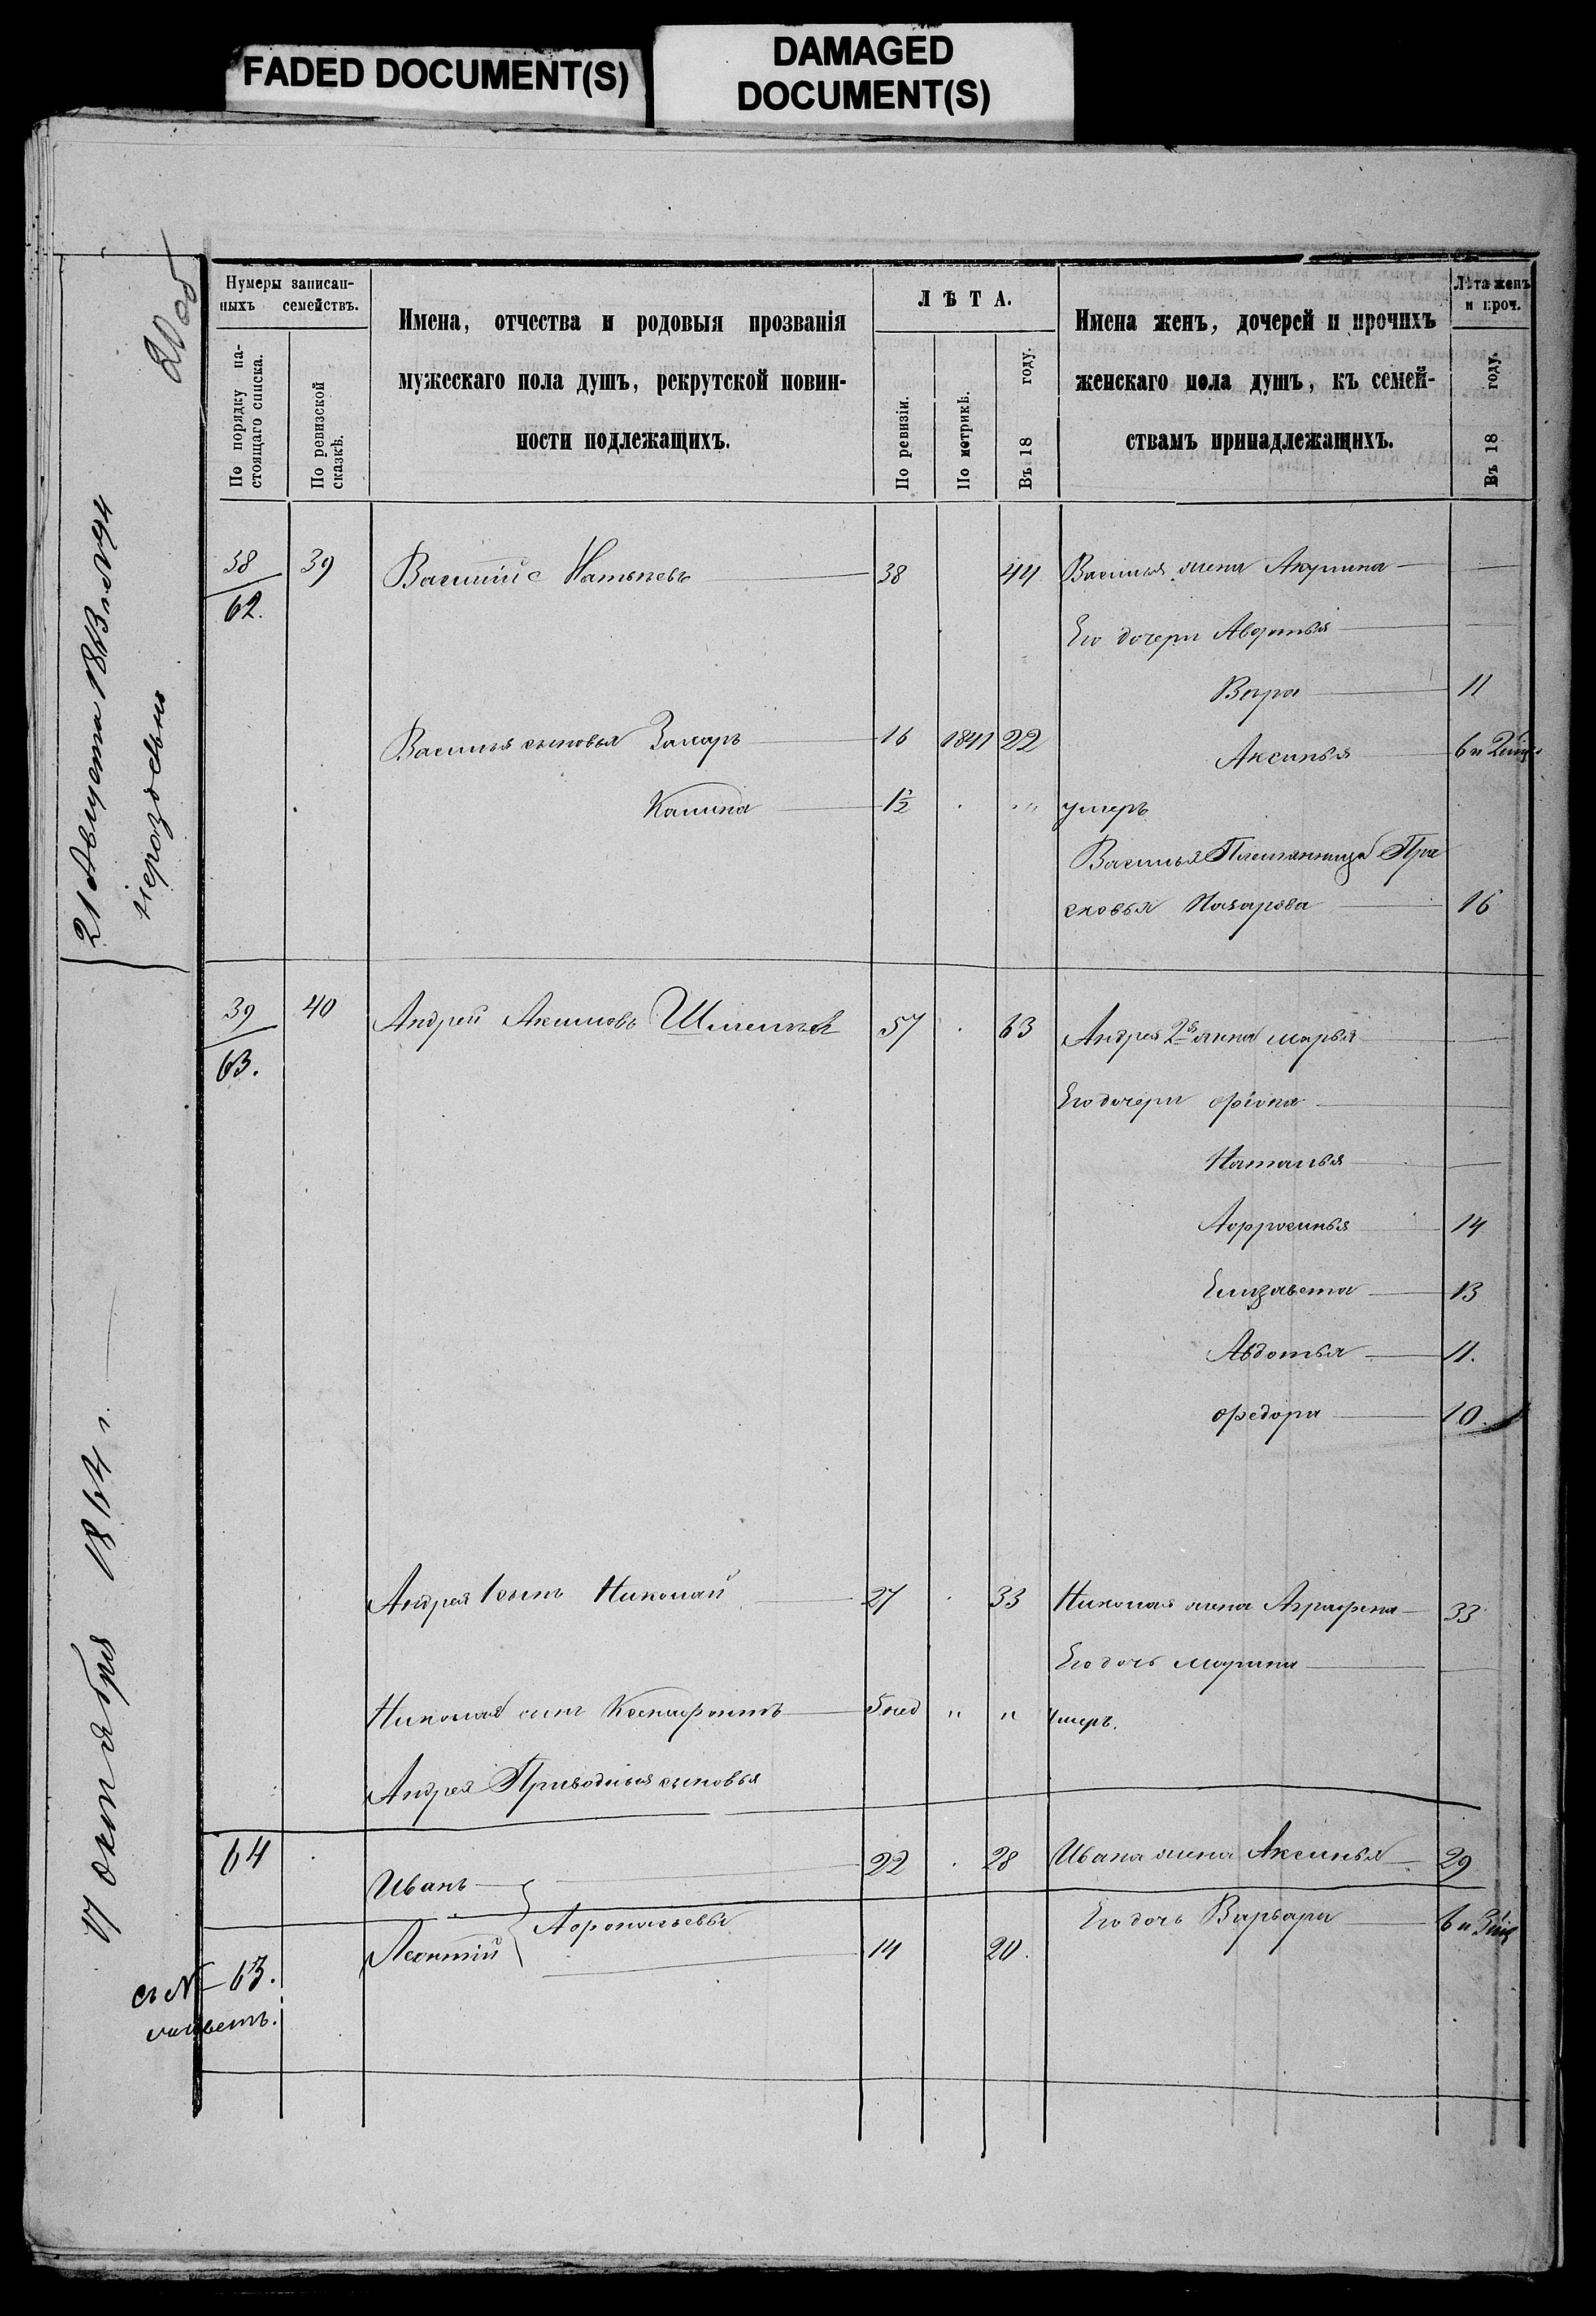 FADED DOCUMENT(S)
DAMAGED
DOCUMENT(S)
Нумеры записан-
ныхъ семействъ.
По порядку на-
стоящаго списка.
По ревизской
сказкѣ.
Имена, отчества и родовыя прозванія
мужескаго пола душъ, рекрутской повин-
ности подлежащихъ.
ЛѢТА.
По ревизіи.
По метрикѣ.
Въ 18 году.
Имена женъ, дочерей и прочихъ
женскаго пола душъ, къ семей-
ствамъ принадлежащихъ.
Лѣта женъ
и проч.
Въ 18 году.
21 Августа 1863 г. № 94
38 39 38 44 Василья жена Акулина
62.
Его дочери Авдотья
Вѣра 11
Василья сыновья Захаръ 16 1841 22
Аксинья 6 и
Калина 1½ " умеръ
Василья Племянница Пра
сковья Назарова 16
39 40 Андрей Акимовъ 57 63 Андрея 2я жена Марья
63.
Его дочери
Наталья
Афросинья 14
Елизавета 13
Авдотья 11.
Федора 10.
17 октября 1864 г.
Андрея 1 сынъ Николай 27 33 Николая жена Аграфена 33
Его дочь Марина
Николая сынъ Ксенофонтъ 5 нед " " Умеръ.
Андрея Приводныя сыновья
64 Иванъ 22 28 Ивана жена Аксинья 29
Его дочь Варвара 6 и
Леонтій 14 20.
съ № 63.